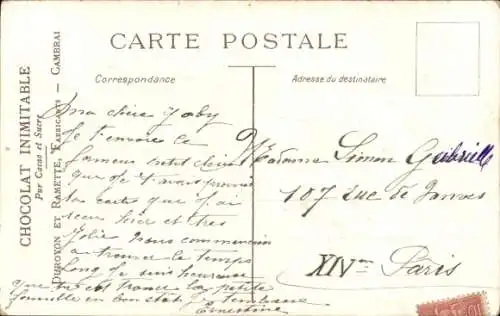 CHOCOLAT INIMITABLE
Pur Cacao et Sucre
DUROYON ET RAMETTE, FABRICANTS — CAMBRAI
CARTE POSTALE
Correspondance
Adresse du destinataire
ma chère Gaby
Je t'envoie le
fameux petit chien
que je t'avais promis
ta carte que j'ai
reçu hier et très
Jolie nous commencion
a trouver le temps
long je suis heureuse
que
la petite
famille en bon état
Ernestine
Madame Simon Gabrielle
107 rue de
XIVme Paris